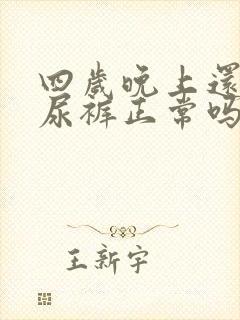 四歲晚上還
尿裤正常吗
王新宇